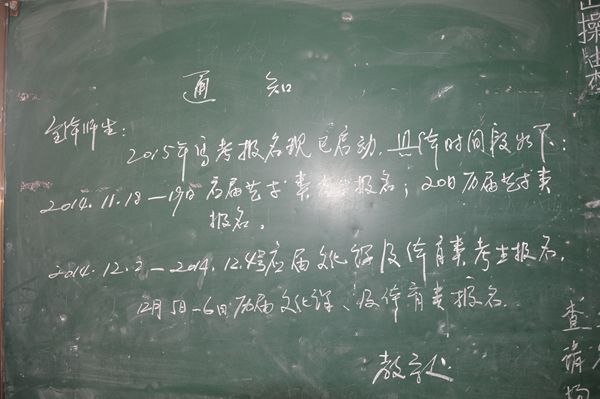 通知
全体师生:
2015年高考报名现已启动,具体时间段如下:
2014.11.18—19日应届艺术类考生报名;20日历届艺术类
报名。
2014.12.2—2014.12.4号应届文化课及体育类考生报名,
12月5日-6日历届文化课、及体育类报名.
教导处
查
请